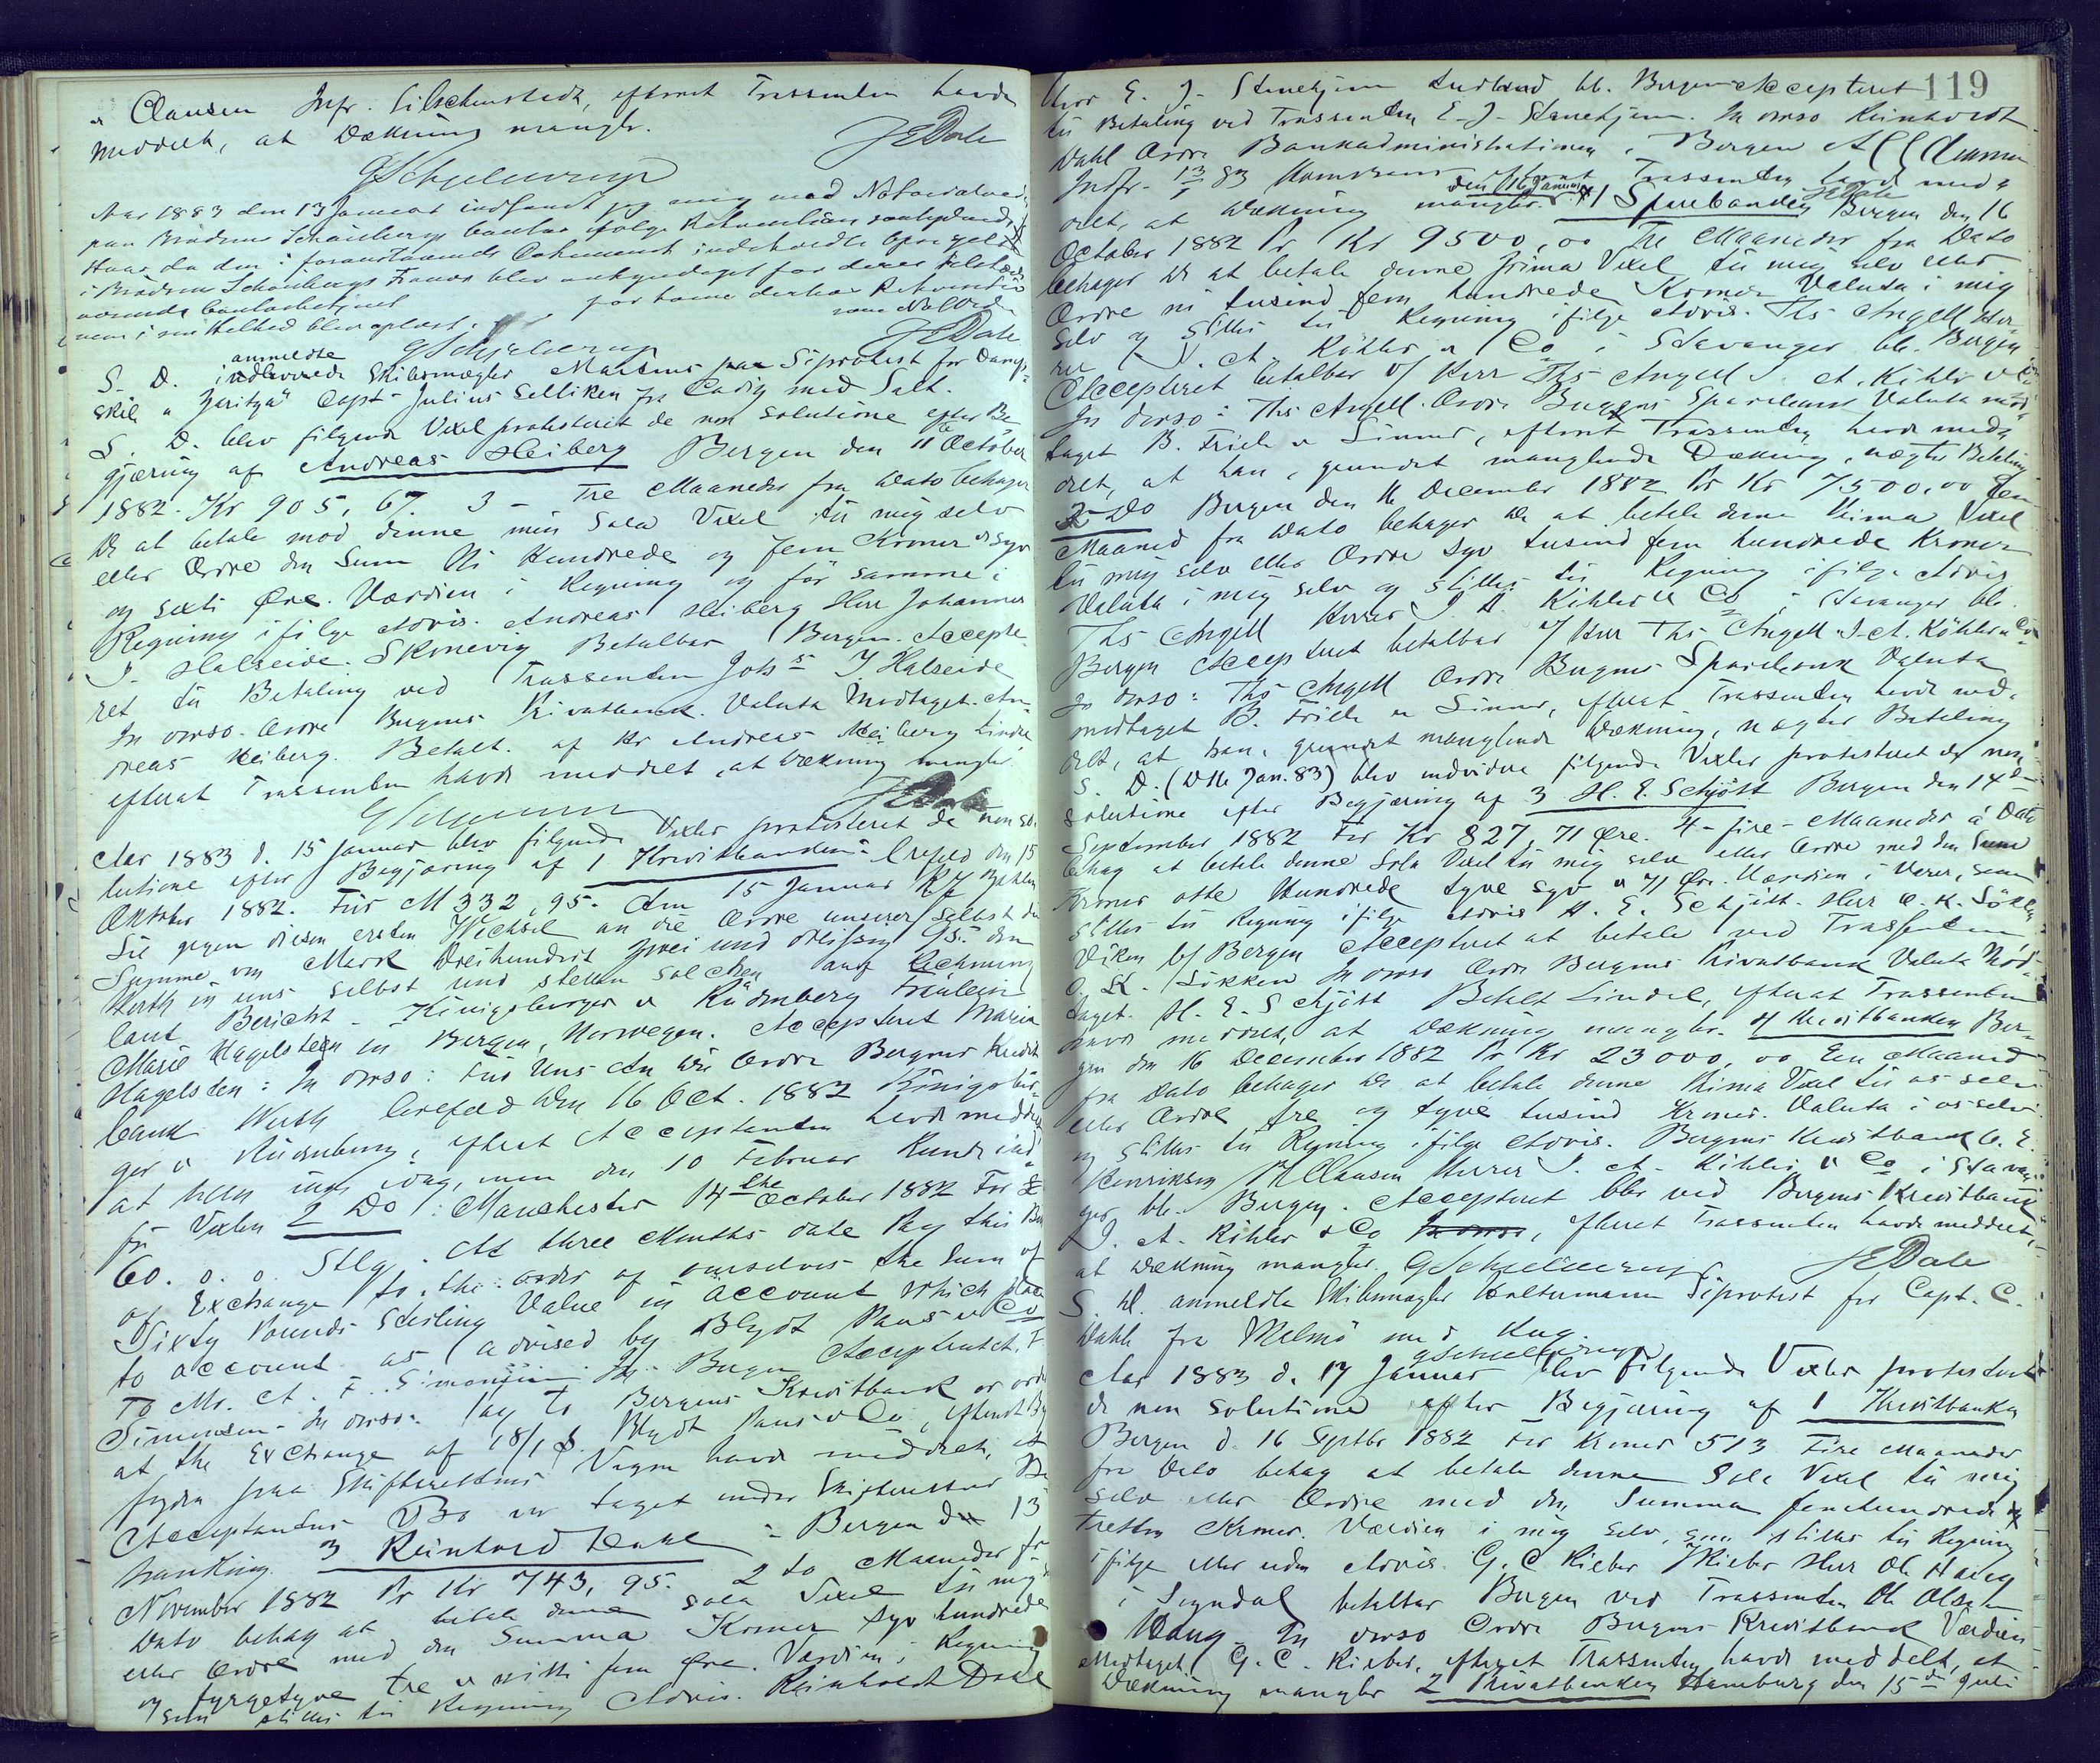 & Clausen Insp. Lilschenstedt, efterat Trassenten havde
meddelt, at Dækning mangler.
JEDale
GSchjelderup
Aar 1883 den 13 Januar indfandt jeg mig med Notarialvid-
paa Brødrene Schönbergs Contor ifølge Rekvisition
Hvor da den i foranstaaende Dokument indeholdte Opsigelse
i Brødrene Schönbergs Fravær blev forkyndt for deres tilstede-
værende Contorbetjent
nem i sin Helhed blev oplæst.
JEDale
GSchjelderup
S. D. anmeldte Skibsmægler Martens Søprotest for Damp-
skib "Zaritza" Capt. Julius Selliken fra Cadiz med Salt.
S. D. blev følgende Vexel protesteret de non solutione efter Be-
gjæring af Andreas Heiberg Bergen den 11 October
1882. Kr 905, 67. 3 - Tre Maaneder fra Dato behager
De at betale mod denne min Sola Vexel til mig selv
eller Ordre den Sum Ni Hundrede og fem Kroner & syv
og sexti Øre. Værdien i Regning og för samme i
Regning ifølge Advis. Andreas Heiberg Herr Johannes
J. Halseide. Skonevig Betalbar Bergen. Accepte-
ret til Betaling ved Trassenten Johs J Halseide
In dorso. Ordre Bergens Privatbank. Valuta Modtaget. An-
dreas Heiberg. Betalt. af Hr Andreas Heiberg Lindre
efterat Trassenten havde meddelt, at Dækning mangler.
GSchjelderup JEDale
Aar 1883 d. 15 Januar blev følgende Vexler protesteret de non so-
lutione efter Begjæring af 1 Kreditbanken: Crefeld den 15
Oktober 1882. Für M 332, 95. Am 15 Januar Zahlen
Sie gegen diesen ersten Wechsel an die Ordre unserer selbst die
Summe von Mark Dreihundert zwei und dreissig 95. den
Werth in uns selbst und stellen solchen auf Rechnung
laut Bericht. Königsberger & Rüdenberg Fräulein
Marie Hagelsteen in Bergen, Norwegen. Accepteret Marie
Hagelsteen: In dorso: Für Uns An die Ordre Bergens Kredit
bank Werth Crefeld den 16 Oct. 1882 Königsber-
ger & Rüdenberg, efterat Acceptanten havde meddelt
at hun idag, men den 10 Februar kunde ind-
fri Vexlen 2 Do: Manchester 14the October 1882 For £
60. 0. 0. Stlg. At three Months date Pay this Bill
of Exchange to the order of ourselves the Sum of
Sixty Pounds Sterling Value in account which place
to account as advised by Blydt Paus & Co
To Mr. A. F. Simonsen Bergen Accepteret. F.
Simonsen. In dorso: Pay to Bergens Kreditbank or order
at the Exchange of 18/1 . Blydt Paus & Co, efterat By-
fogden paa Skifterettens Vegne havde meddelt, at
Acceptantens Bo var taget under Skifterettens Be-
handling. 3 Reinhard Dahl: Bergen den 13
November 1882 Pr Kr 743, 95. 2 to Maaneder fra
Dato behag at betale denne sola Vexel til mig
eller Ordre med den Summa Kroner syv hundrede
og fyrgetyve tre & nitti fem Øre. Værdien i Regning
som stilles til Regning Advis. Reinholdt Dahl
119
Herr E. J. Stenehjem Sudland bb. Bergen Accepteret
til Betaling ved Trassenten E. J. Stenehjem. In dorso Reinhardt
Dahl Ordre Bankadministrationen i Bergen
Indfr. 13/1 83 efterat Trassenten havde medde-
den 16 Januar
elt, at Dækning mangler. 1 Sparebanken Bergen den 16
JEDale
October 1882 Pr Kr 9500,00 Tre Maaneder fra Dato
behager De at betale denne Prima Vexel til mig selv eller
Ordre ni tusind fem hundrede Kroner Valuta i mig
selv og stilles til Regning ifølge Advis. Ths Angell Her-
rer J. A. Köhler & Co i Stavanger bb. Bergen
Accepteret betalbar o/ Herr Ths Angell J. A. Köhler & Co
In dorso: Ths Angell. Ordre Bergens Sparebank Valuta mod-
taget B. Friele & Sönner, efterat Trassenten havde medde
elt, at han, grundet manglende Dækning, nægter Betaling
2 Do Bergen den 16 December 1882 Pr Kr 7500,00 Een
Maaned fra Dato behager De at betale denne Prima Vexel
til mig selv eller Ordre syv tusind fem hundrede Kroner
Valuta i mig selv og stilles til Regning ifølge Advis
Ths Angell Herrer J A. Köhler & Co i Stavanger bb.
Bergen Accepteret betalbar o/ Herr Ths Angell. J. A. Köhler & Co
In dorso: Ths Angell Ordre Bergens Sparebank Valuta
modtaget B. Friele & Sönner, efterat Trassenten havde med-
delt, at han, grundet manglende Dækning, nægter Betaling
S. D. (D 16 Jan. 83) blev endvidere følgende Vexler protesteret de non
solutione efter Begjæring af 3 H. E. Schjött Bergen den 14de
September 1882 For Kr 827, 71 Øre. 4 - fire - Maaneder à Dato
behag at betale denne Sola Vexel til mig selv eller Ordre med den Summa
Kroner otte Hundrede tyve syv & 71 Øre. Værdien i Varer, som
stilles til Regning ifølge Advis H. E. Schjött. Herr O. K. Søkken
Viken b/ Bergen Accepteret at betale ved Trassenten
O. K. Søkken In dorso Ordre Bergens Privatbank Valuta Mod-
taget. H. E. Schjött Betalt Lindal, efterat Trassenten
havde meddelt, at Dækning mangler. 4 Kreditbanken Ber-
gen den 16 December 1882 Pr Kr 23000,00 Een Maaned
fra Dato behager De at betale denne Prima Vexel til os selv
eller Ordre tre og tyve tusind Kroner. Valuta i os selv
og stilles til Regning ifølge Advis. Bergens Kreditbank C. E.
Henriksen Clausen Herrer J. A. Köhler & Co i Stavan-
ger bb. Bergen. Accepteret bbr ved Bergens Kreditbank
J. A. Köhler & Co In dorso, efterat Trassenten havde meddelt,
at Dækning mangler. GSchjelderup JEDale
S. D. anmeldte Skibsmægler Valtermann Søprotest for Capt. C.
Dahle fra Malmö med Rug.
GSchjelderup
Aar 1883 d. 17 Januar blev følgende Vexler protesteret
de non solutione efter Begjæring af 1 Kreditbanken
Bergen d. 16 Septbr 1882 For Kroner 513 Fire Maaneder
fra Dato behag at betale denne Sola Vexel til mig
selv eller Ordre med den Summa femhundrede &
tretten Kroner. Værdien i mig selv, som stilles til Regning
ifølge eller uden Advis. G. C Rieber Herr Ole Haug
i Sogndal betalbar Bergen ved Trassenten Ole Olsen
Haug In dorso Ordre Bergens Kreditbank Værdien
Modtaget. G. C. Rieber, efterat Trassenten havde meddelt, at
Dækning mangler 2 Privatbanken Hamburg den 15de Juli